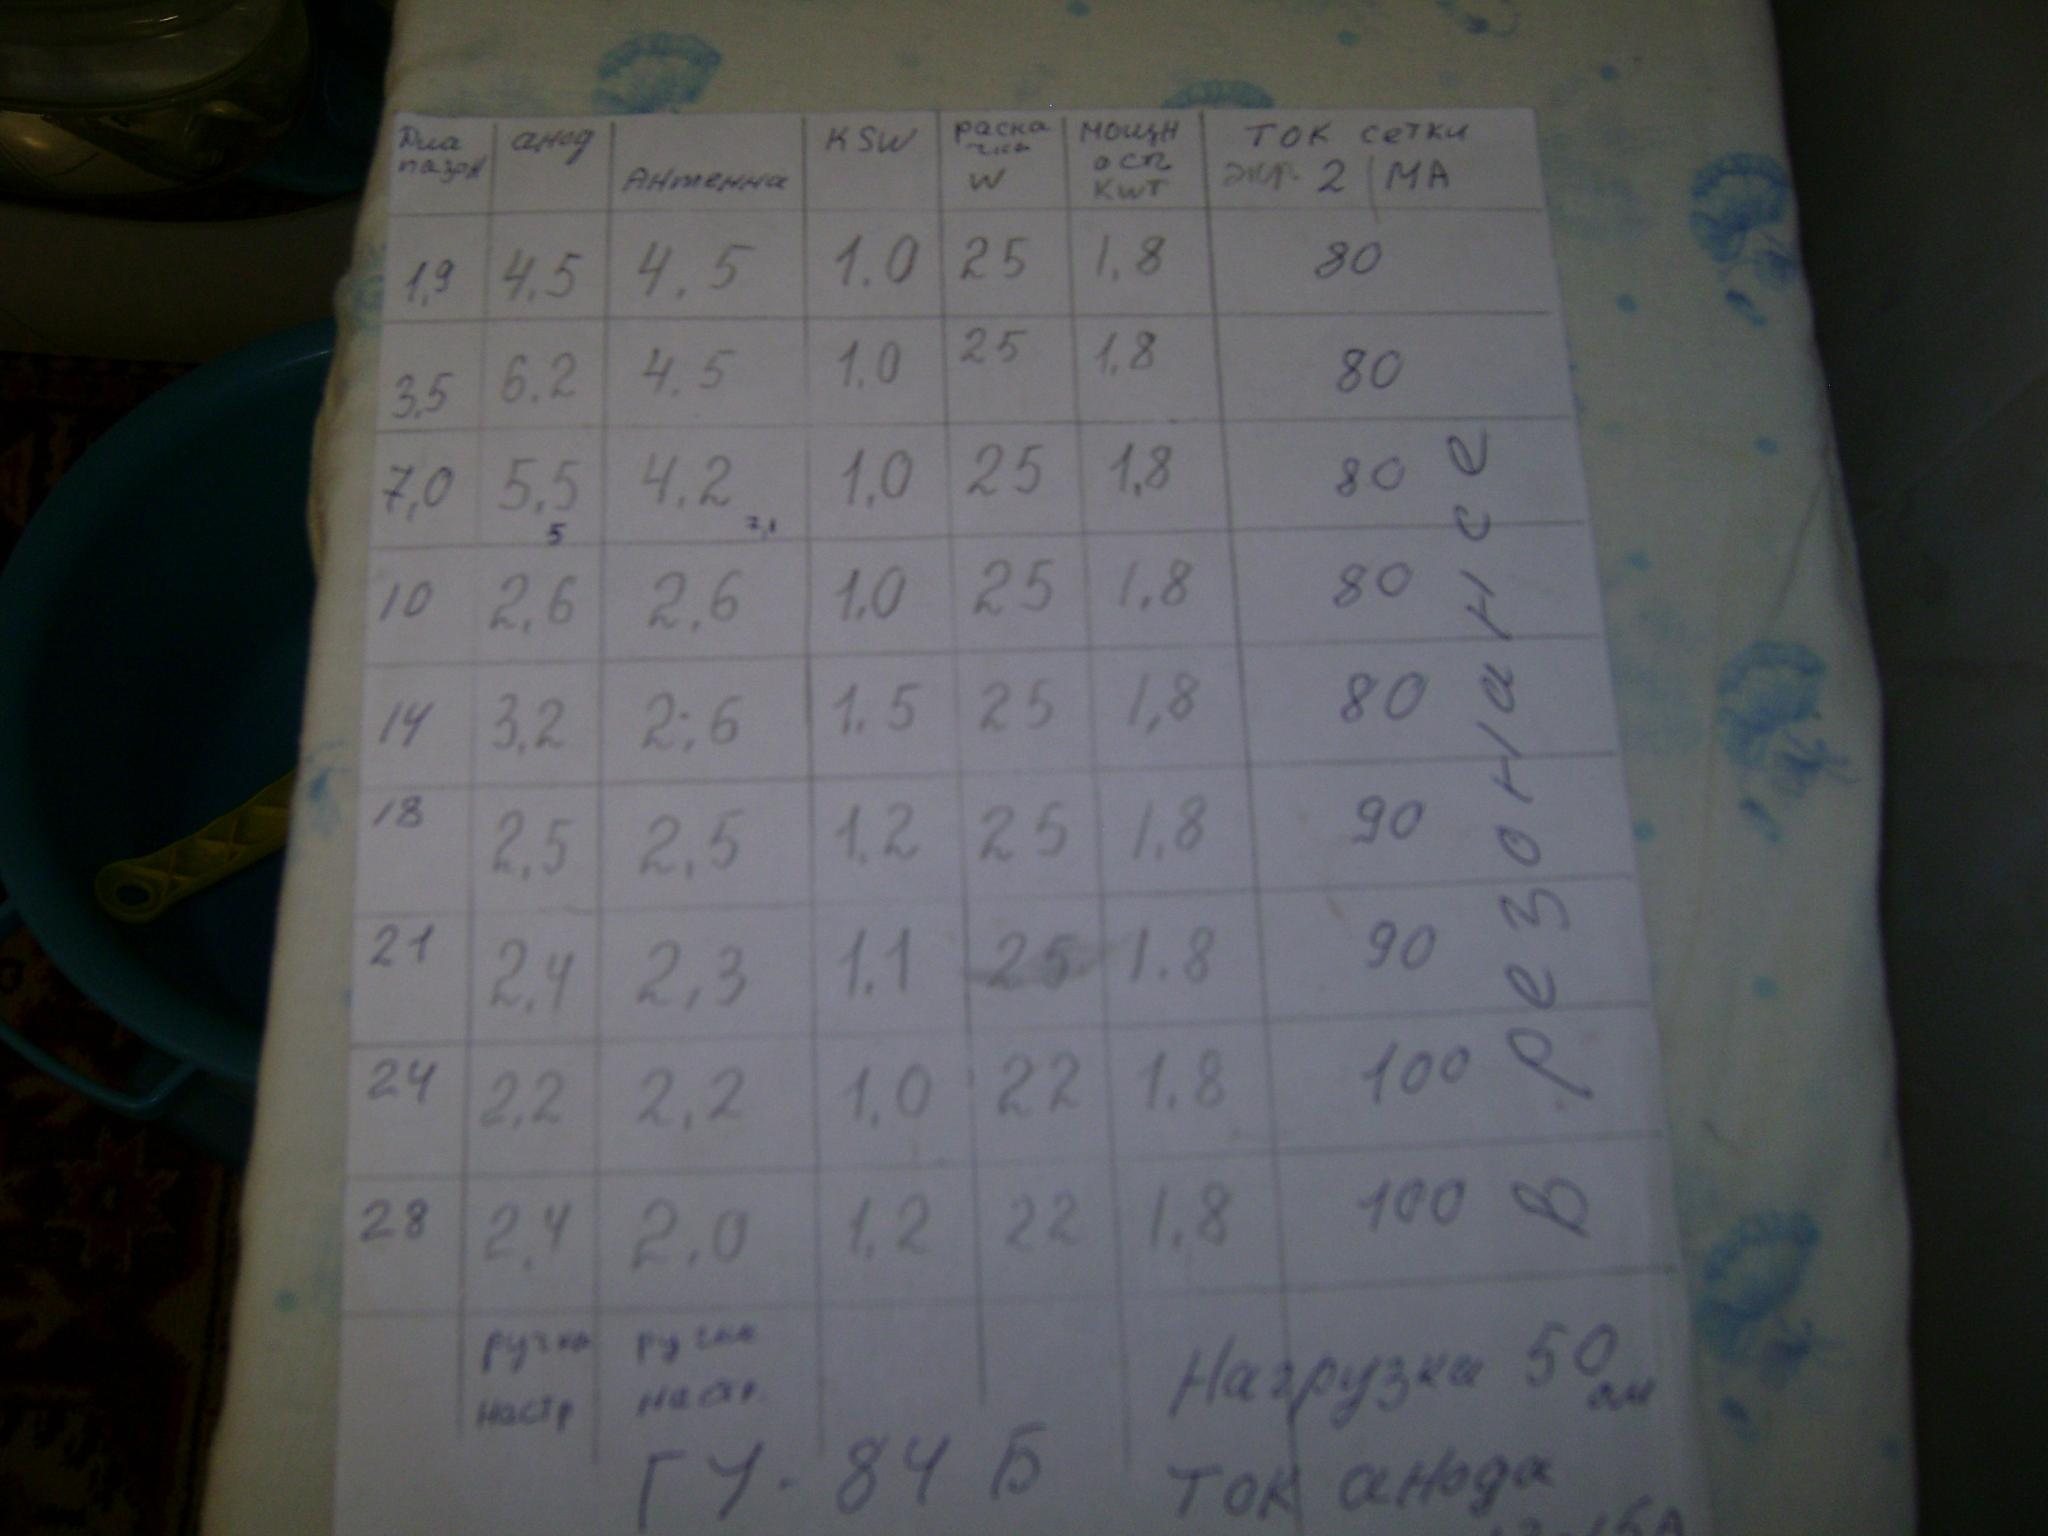 Диа пазон анод Антенна KSW раска чка W мощн ость KWT ток сетки экр. 2 МА
1,9 4,5 4.5 1.0 25 1,8 80
3,5 6.2 4.5 1.0 25 1,8 80
7,0 5,5 4.2 1,0 25 1,8 80
5 7,1
10 2,6 2,6 1.0 25 1,8 80
14 3,2 2:6 1.5 25 1,8 80
18 2,5 2,5 1.2 25 1,8 90
21 2,4 2,3 1.1 25 1.8 90
24 2,2 2,2 1,0 22 1.8 100
28 2,4 2,0 1,2 22 1,8 100
В резонансе
ручка настр ручка настр.
Нагрузка 50 ом
ГУ-84 Б
Ток анода